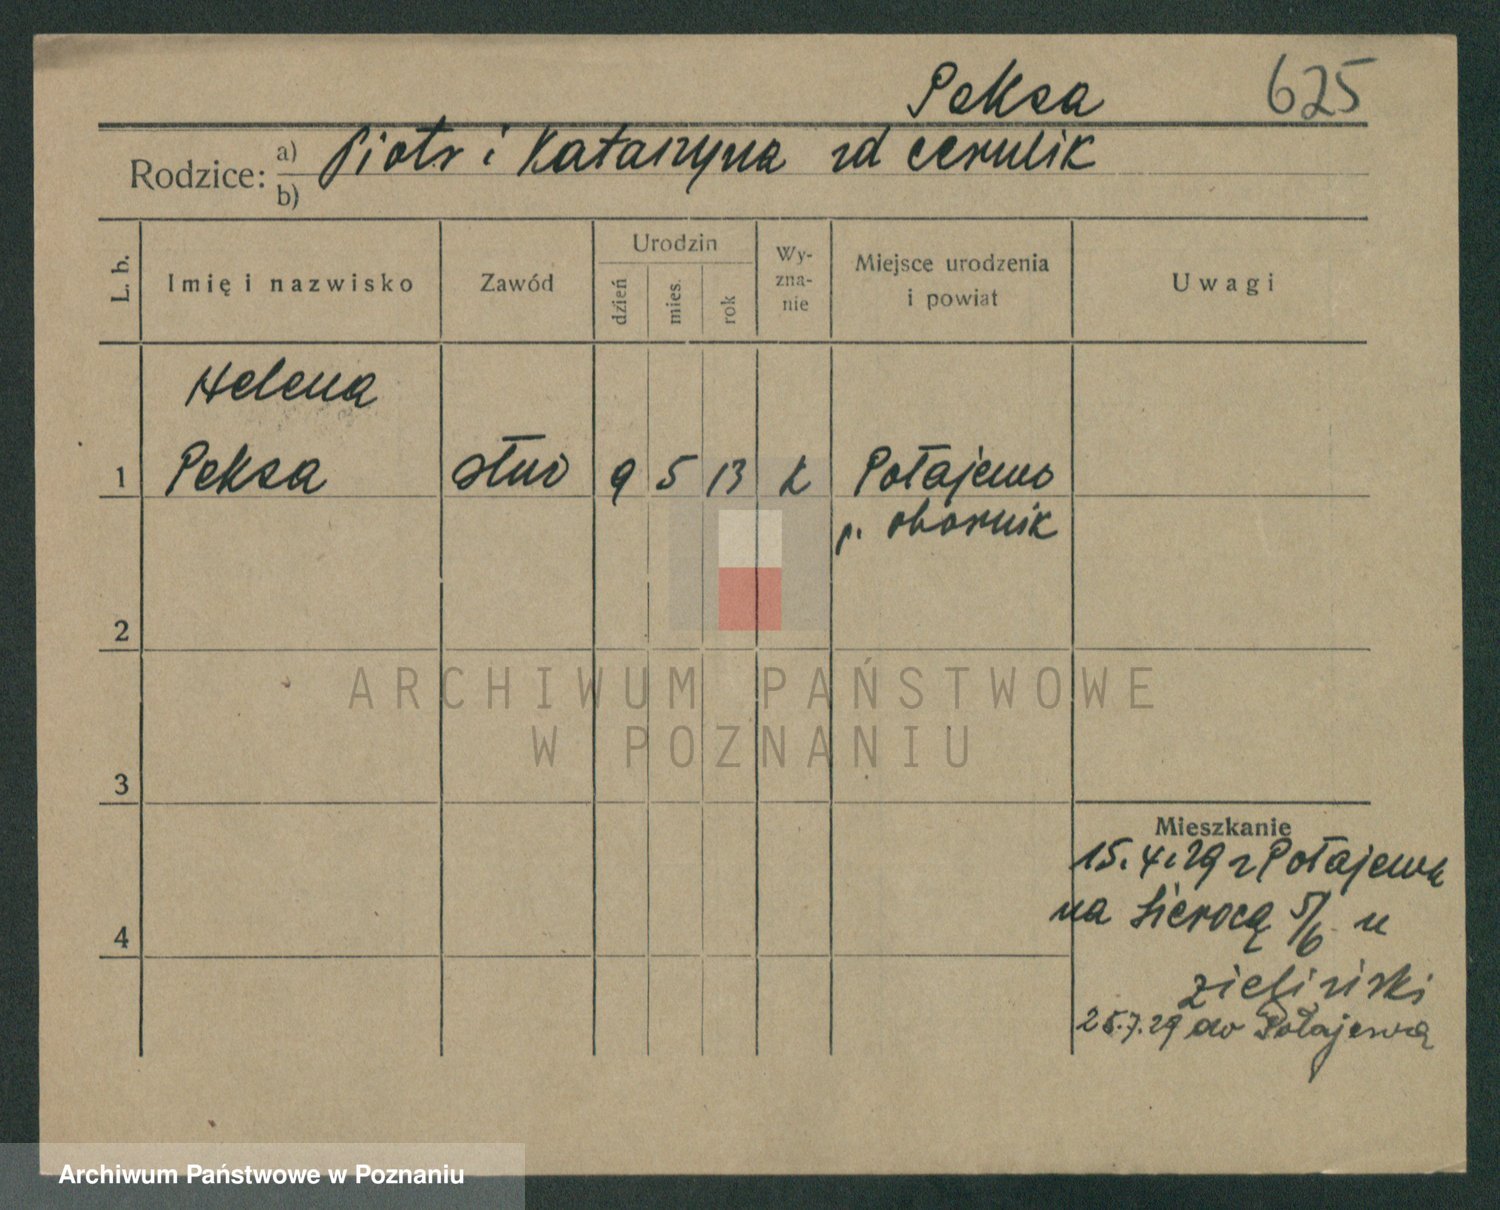 Peksa 625
Rodzice: a) Piotr i Katarzyna zd cerulik
b)
L. b. Imię i nazwisko Zawód Urodzin dzień mies. rok Wy-zna-nie Miejsce urodzenia i powiat Uwagi
Helena
1 Peksa służ 9 5 13 k Połajewo
p. obornik
2
ARCHIWUM PAŃSTWOWE
W POZNANIU
3
Mieszkanie
15.4.29 z Połajewa
na Sierocą 5/6 u
4
Zieliński
25.7.29 do Połajewa
Archiwum Państwowe w Poznaniu